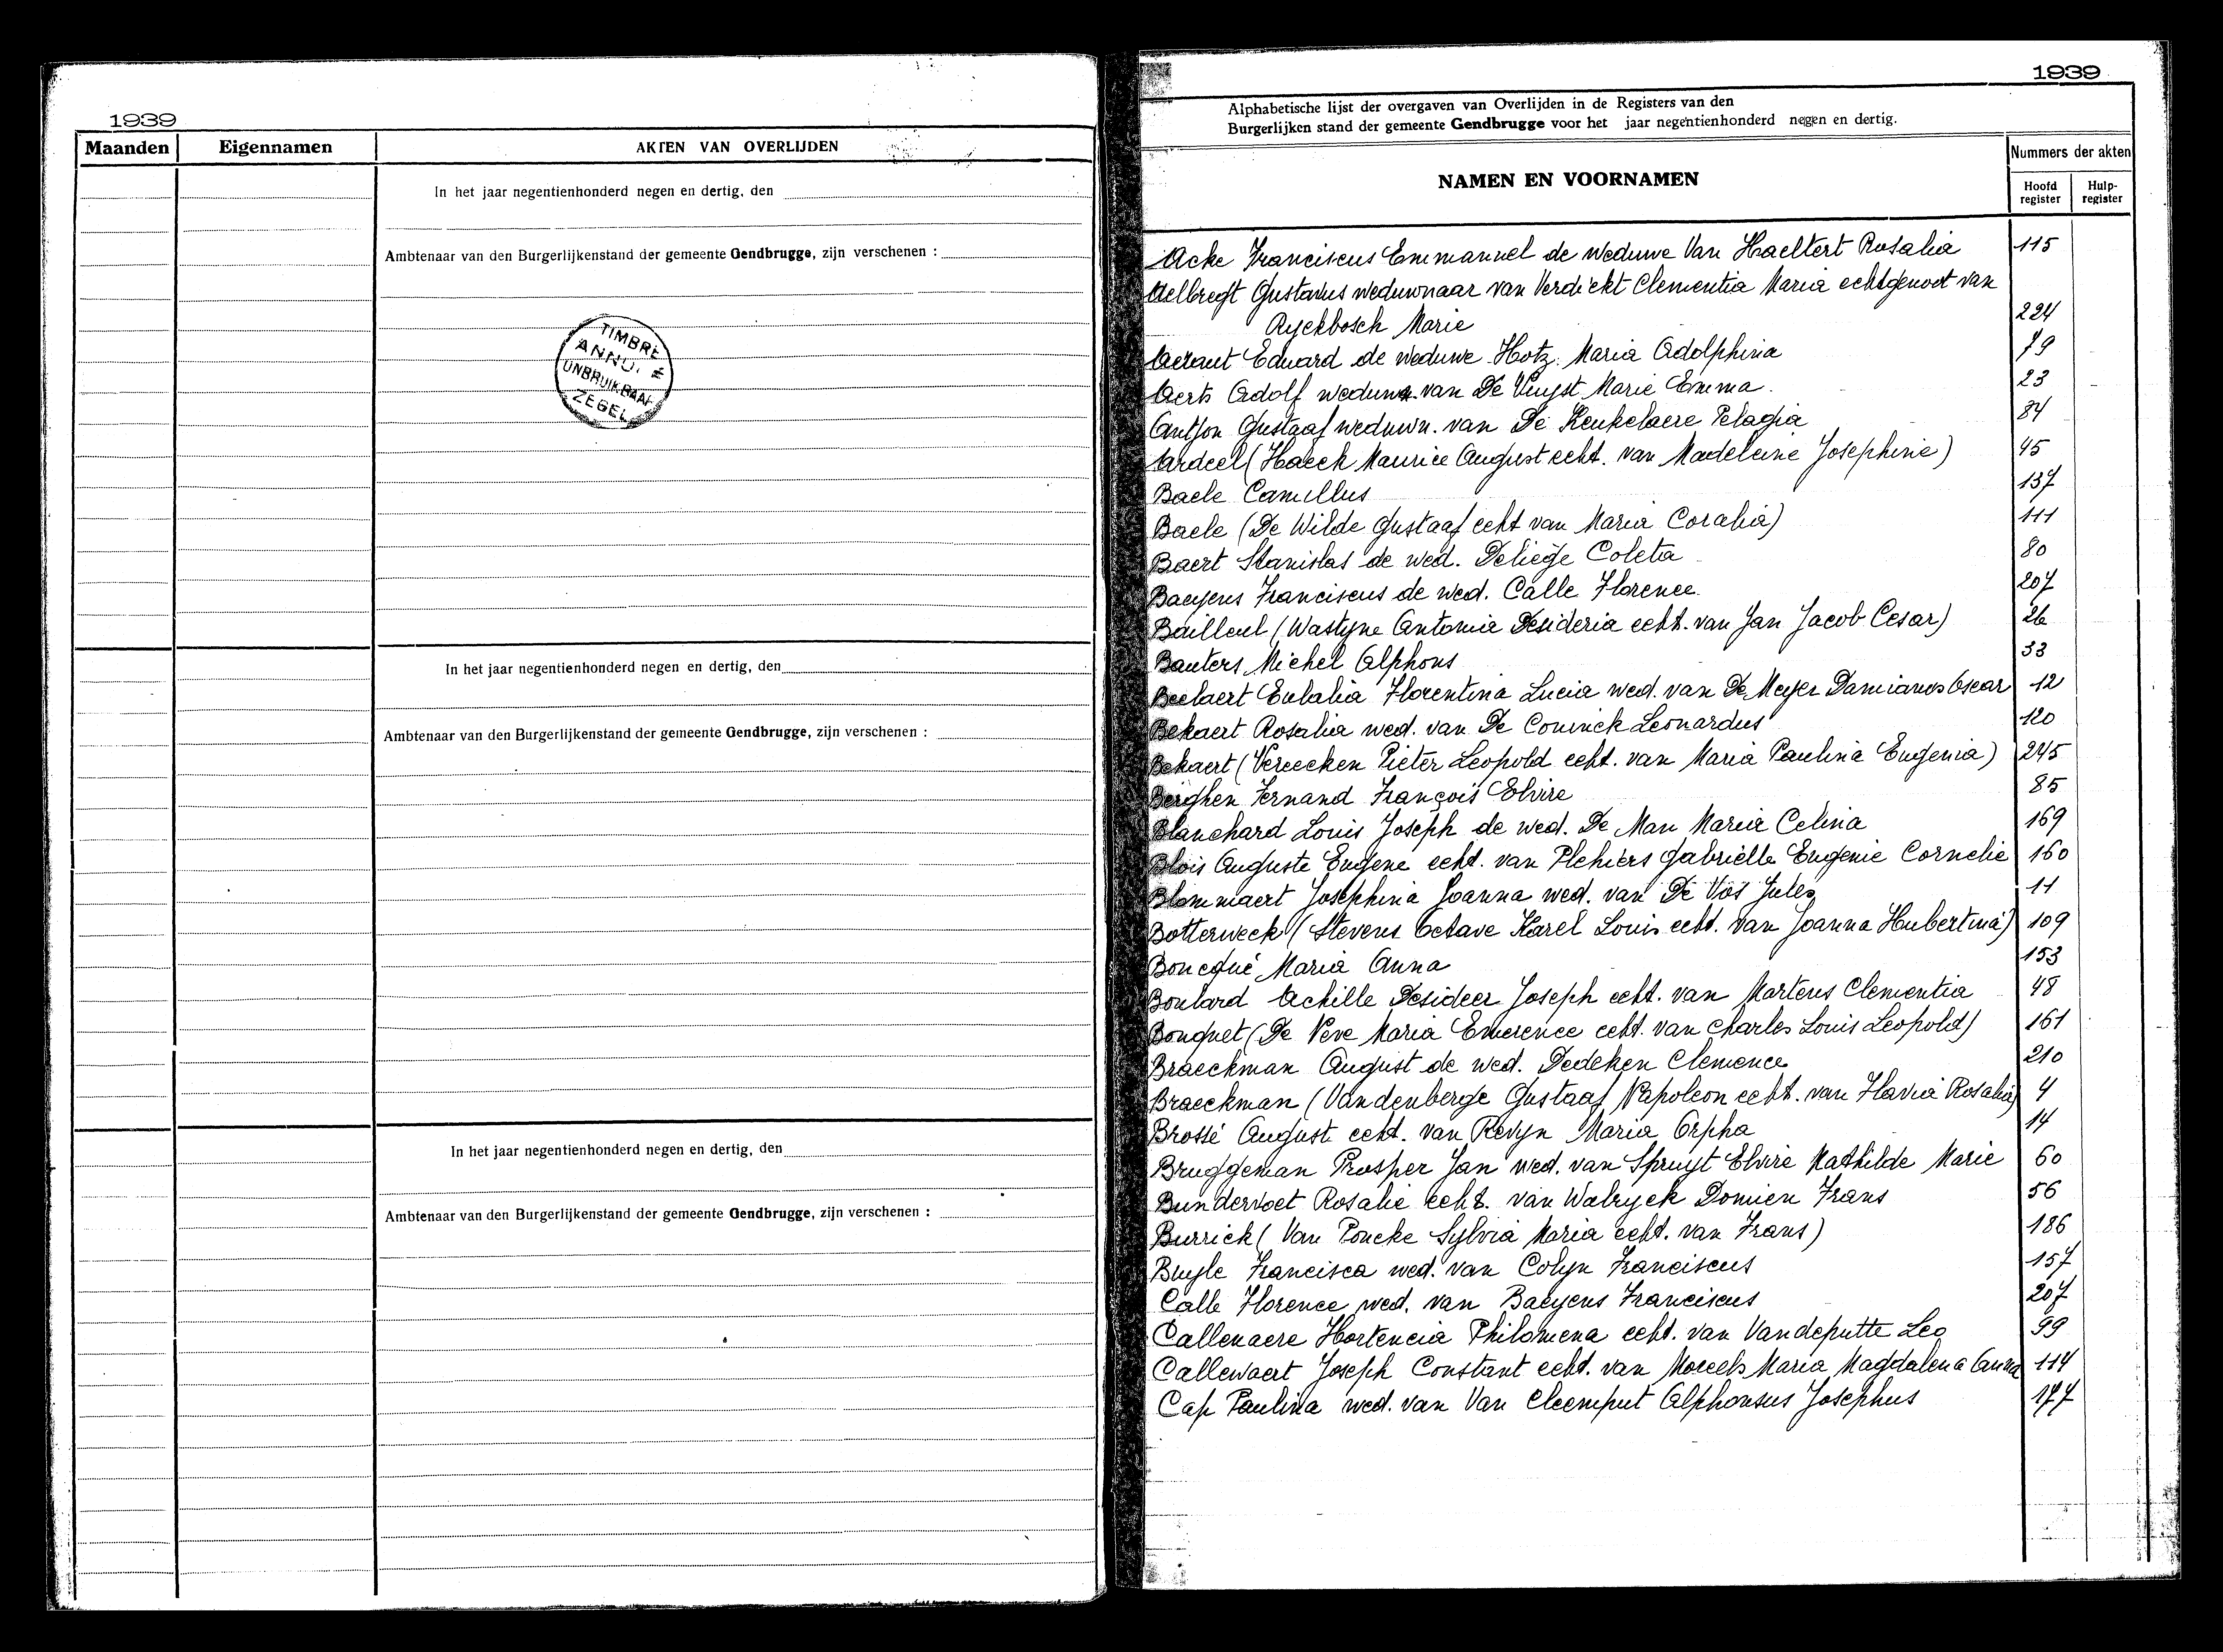 1939
Maanden Eigennamen AKTEN VAN OVERLIJDEN
In het jaar negentienhonderd negen en dertig, den
Ambtenaar van den Burgerlijkenstand der gemeente Gendbrugge, zijn verschenen :
TIMBRE
ANNULÉ
ONBRUIKBAAR
ZEGEL
In het jaar negentienhonderd negen en dertig, den
Ambtenaar van den Burgerlijkenstand der gemeente Gendbrugge, zijn verschenen :
In het jaar negentienhonderd negen en dertig, den
Ambtenaar van den Burgerlijkenstand der gemeente Gendbrugge, zijn verschenen :
1939
Alphabetische lijst der overgaven van Overlijden in de Registers van den
Burgerlijken stand der gemeente Gendbrugge voor het jaar negentienhonderd negen en dertig.
NAMEN EN VOORNAMEN
Nummers der akten
Hoofd register
Hulp-register
Acke Franciscus Emmanuel de weduwe Van Haeltert Rosalia 115
Aelbregt Gustavus weduwnaar van Verdickt Clementia Maria echtgenoot van
Ryckbosch Marie 224
Aeraut Eduard de weduwe Hotz Maria Adolphina 79
Aerts Adolf weduwn. van De Vuyst Marie Emma. 23
Antjon Gustaaf weduwn. van De Keukelaere Pelagia 84
Ardeel (Haeck Maurice August echt. van Madeleine Josephine) 45
Baele Camillus 137
Baele (De Wilde Gustaaf echt van Maria Coralia) 111
Baert Stanislas de wed. Deliege Coleta 80
Baeyens Franciscus de wed. Calle Florence 207
Bailleul (Wastyne Antonia Desideria echt. van Jan Jacob Cesar) 26
Bauters Michel Alphons 33
Beelaert Eulalia Florentina Lucia wed. van De Meyer Damianus Oscar 12
Bekaert Rosalia wed. van De Coninck Leonardus 120
Bekaert (Vereecken Pieter Leopold echt. van Maria Paulina Eugenia) 245
Berghen Fernand François Elvire 85
Blanchard Louis Joseph de wed. De Man Maria Celina 169
Blois Auguste Eugene echt. van Plehiers Gabriëlle Eugenie Cornelie 160
Blommaert Josephina Joanna wed. van De Vos Jules 11
Botterweck (Stevens Octave Karel Louis echt. van Joanna Hubertina) 109
Boncqué Maria Anna 153
Boulard Achille Desideer Joseph echt. van Martens Clementia 48
Bouquet (De Neve Maria Emerence echt. van Charles Louis Leopold) 161
Braeckman August de wed. Dedeken Clemence 210
Braeckman (Vandenberge Gustaaf Napoleon echt. van Flavia Rosalia) 4
Brossé August echt. van Revyn Maria Orpha 14
Bruggeman Prosper Jan wed. van Spruyt Elvire Mathilde Marie 60
Bundervoet Rosalie echt. van Walryck Domien Frans 56
Burrick (Van Poucke Sylvia Maria echt. van Frans) 186
Buyle Francisca wed. van Colyn Franciscus 157
Calle Florence wed. van Baeyens Franciscus 207
Callenaere Hortencia Philomena echt. van Vandeputte Leo 99
Callewaert Joseph Constant echt. van Moreels Maria Magdalena Anna 114
Cap Paulina wed. van Van Cleemput Alphonsus Josephus 177